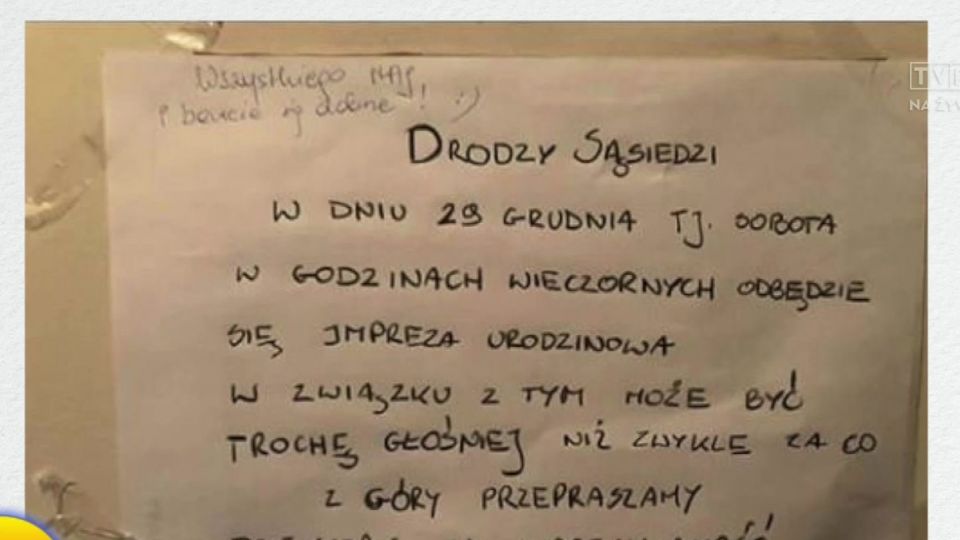 Wszystkiego NAJ!
i bawcie się dobrze! :)
DRODZY SĄSIEDZI
W DNIU 29 GRUDNIA TJ. SOBOTA
W GODZINACH WIECZORNYCH ODBĘDZIE
SIĘ IMPREZA URODZINOWA
W ZWIĄZKU Z TYM MOŻE BYĆ
TROCHĘ GŁOŚNIEJ NIŻ ZWYKLE ZA CO
Z GÓRY PRZEPRASZAMY